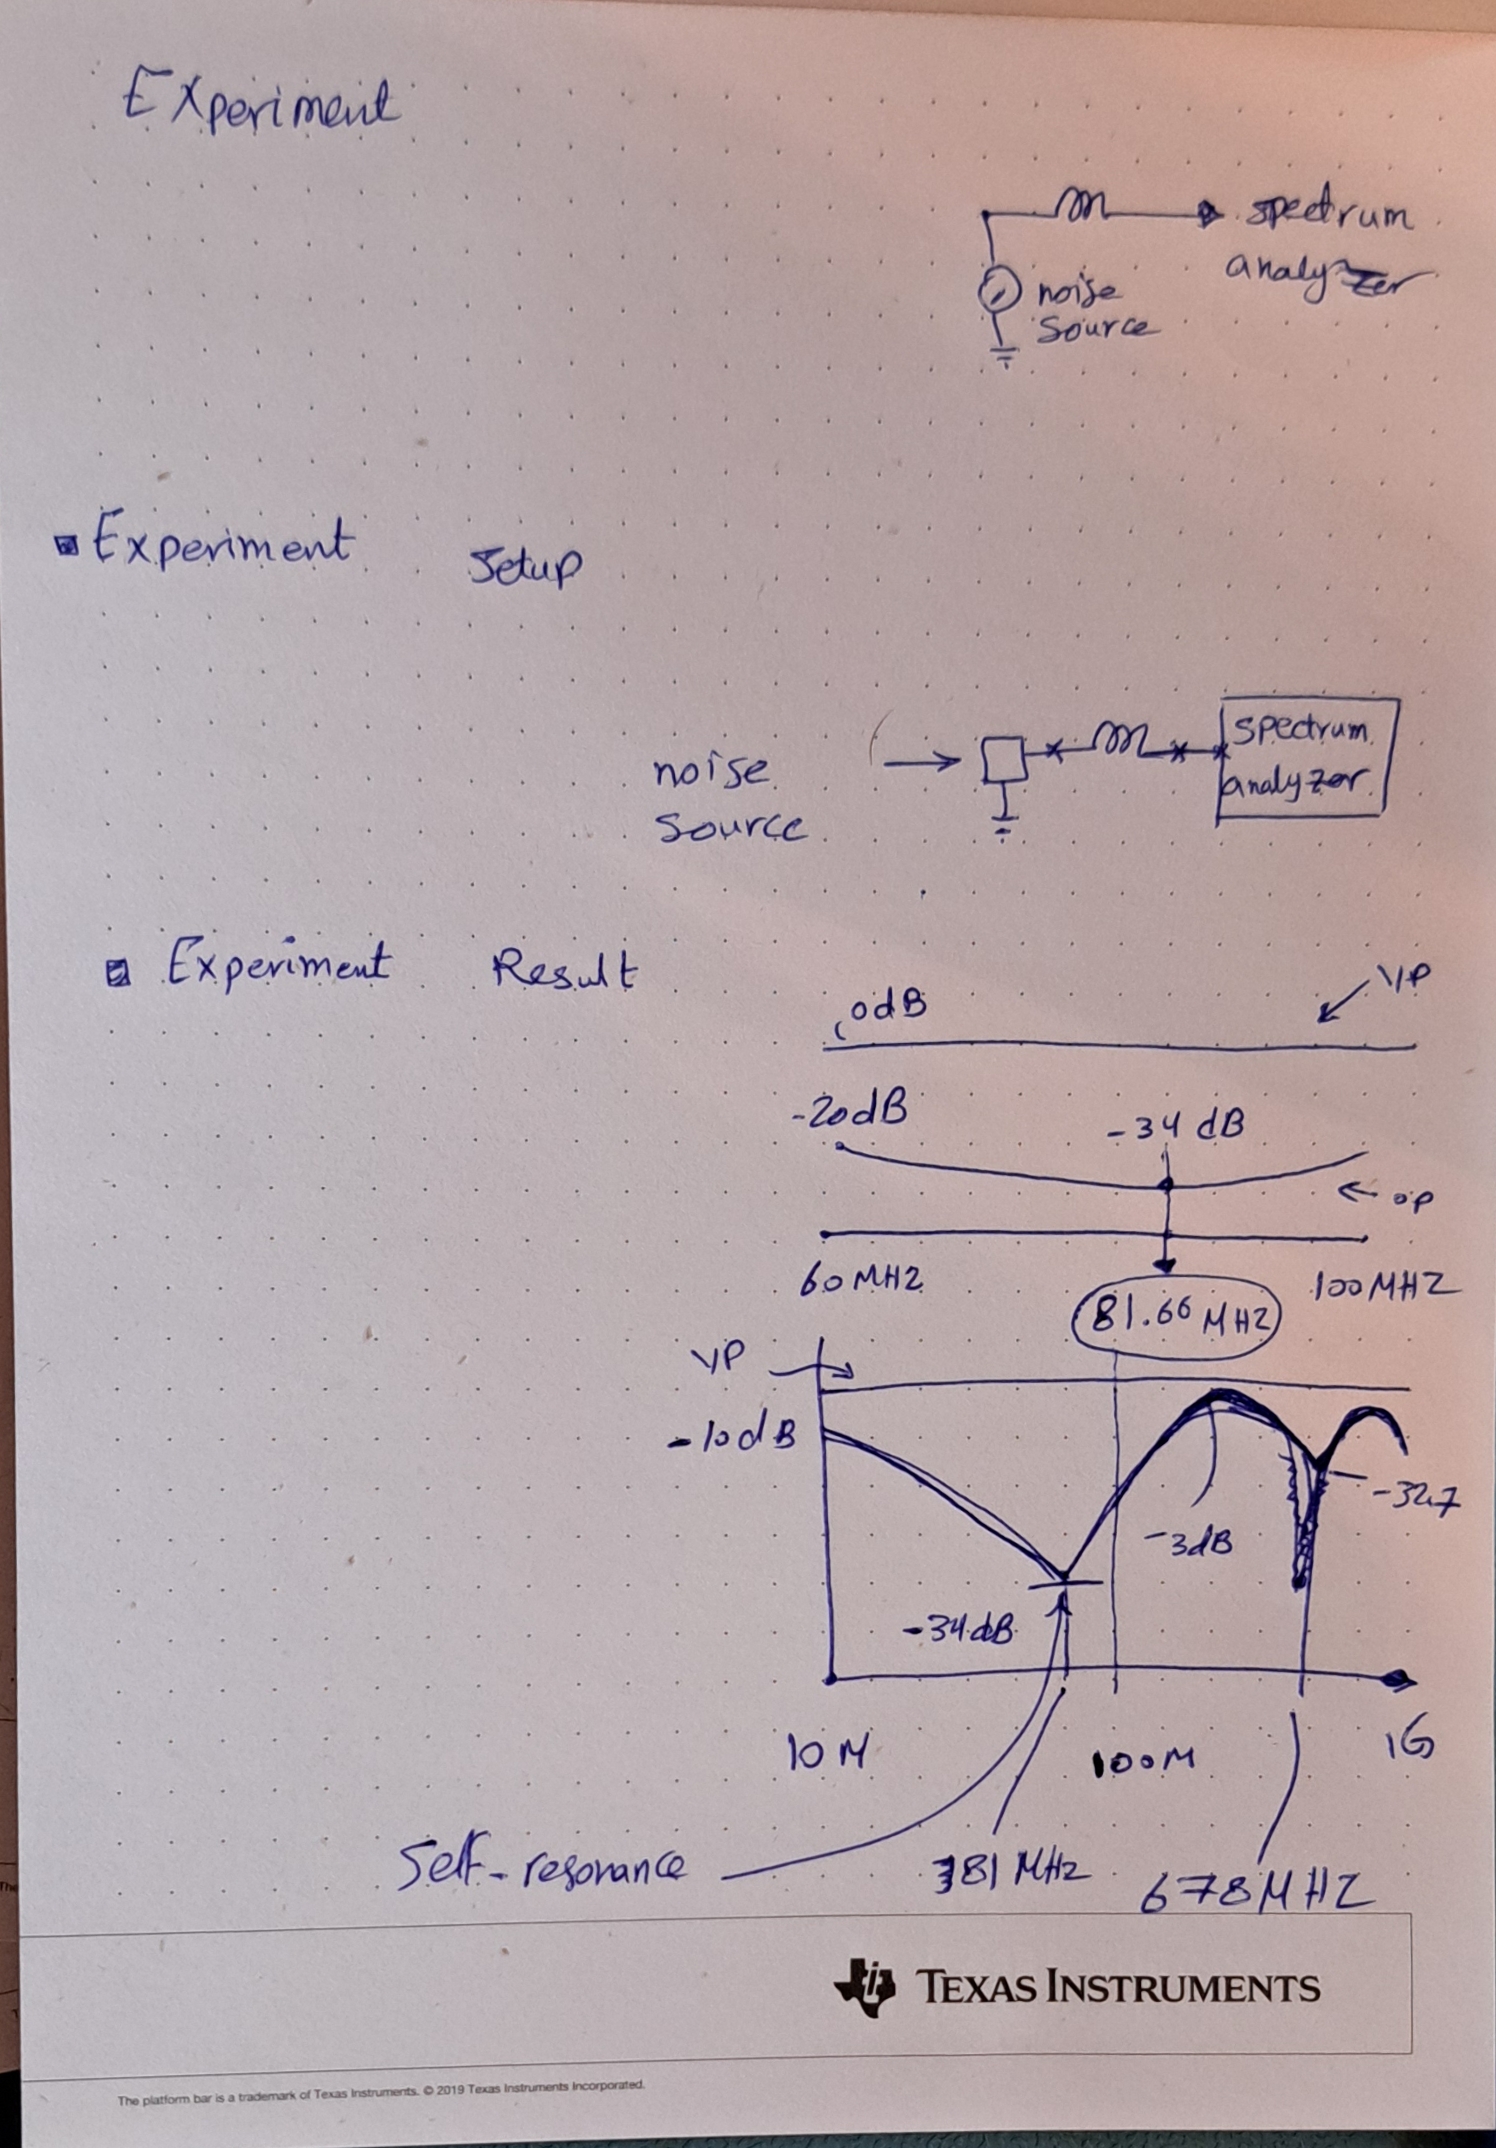 Experiment
spectrum
analyzer
noise
Source
Experiment Setup
spectrum
analyzer
noise
source
Experiment Result
0dB
-20dB
-34 dB
op
60MHZ
100MHZ
81.66 MHZ
-10dB
-3dB
-34dB
10M
100M
1G
Self-resonance
678MHZ
TEXAS INSTRUMENTS
The platform bar is a trademark of Texas Instruments. © 2019 Texas Instruments Incorporated.